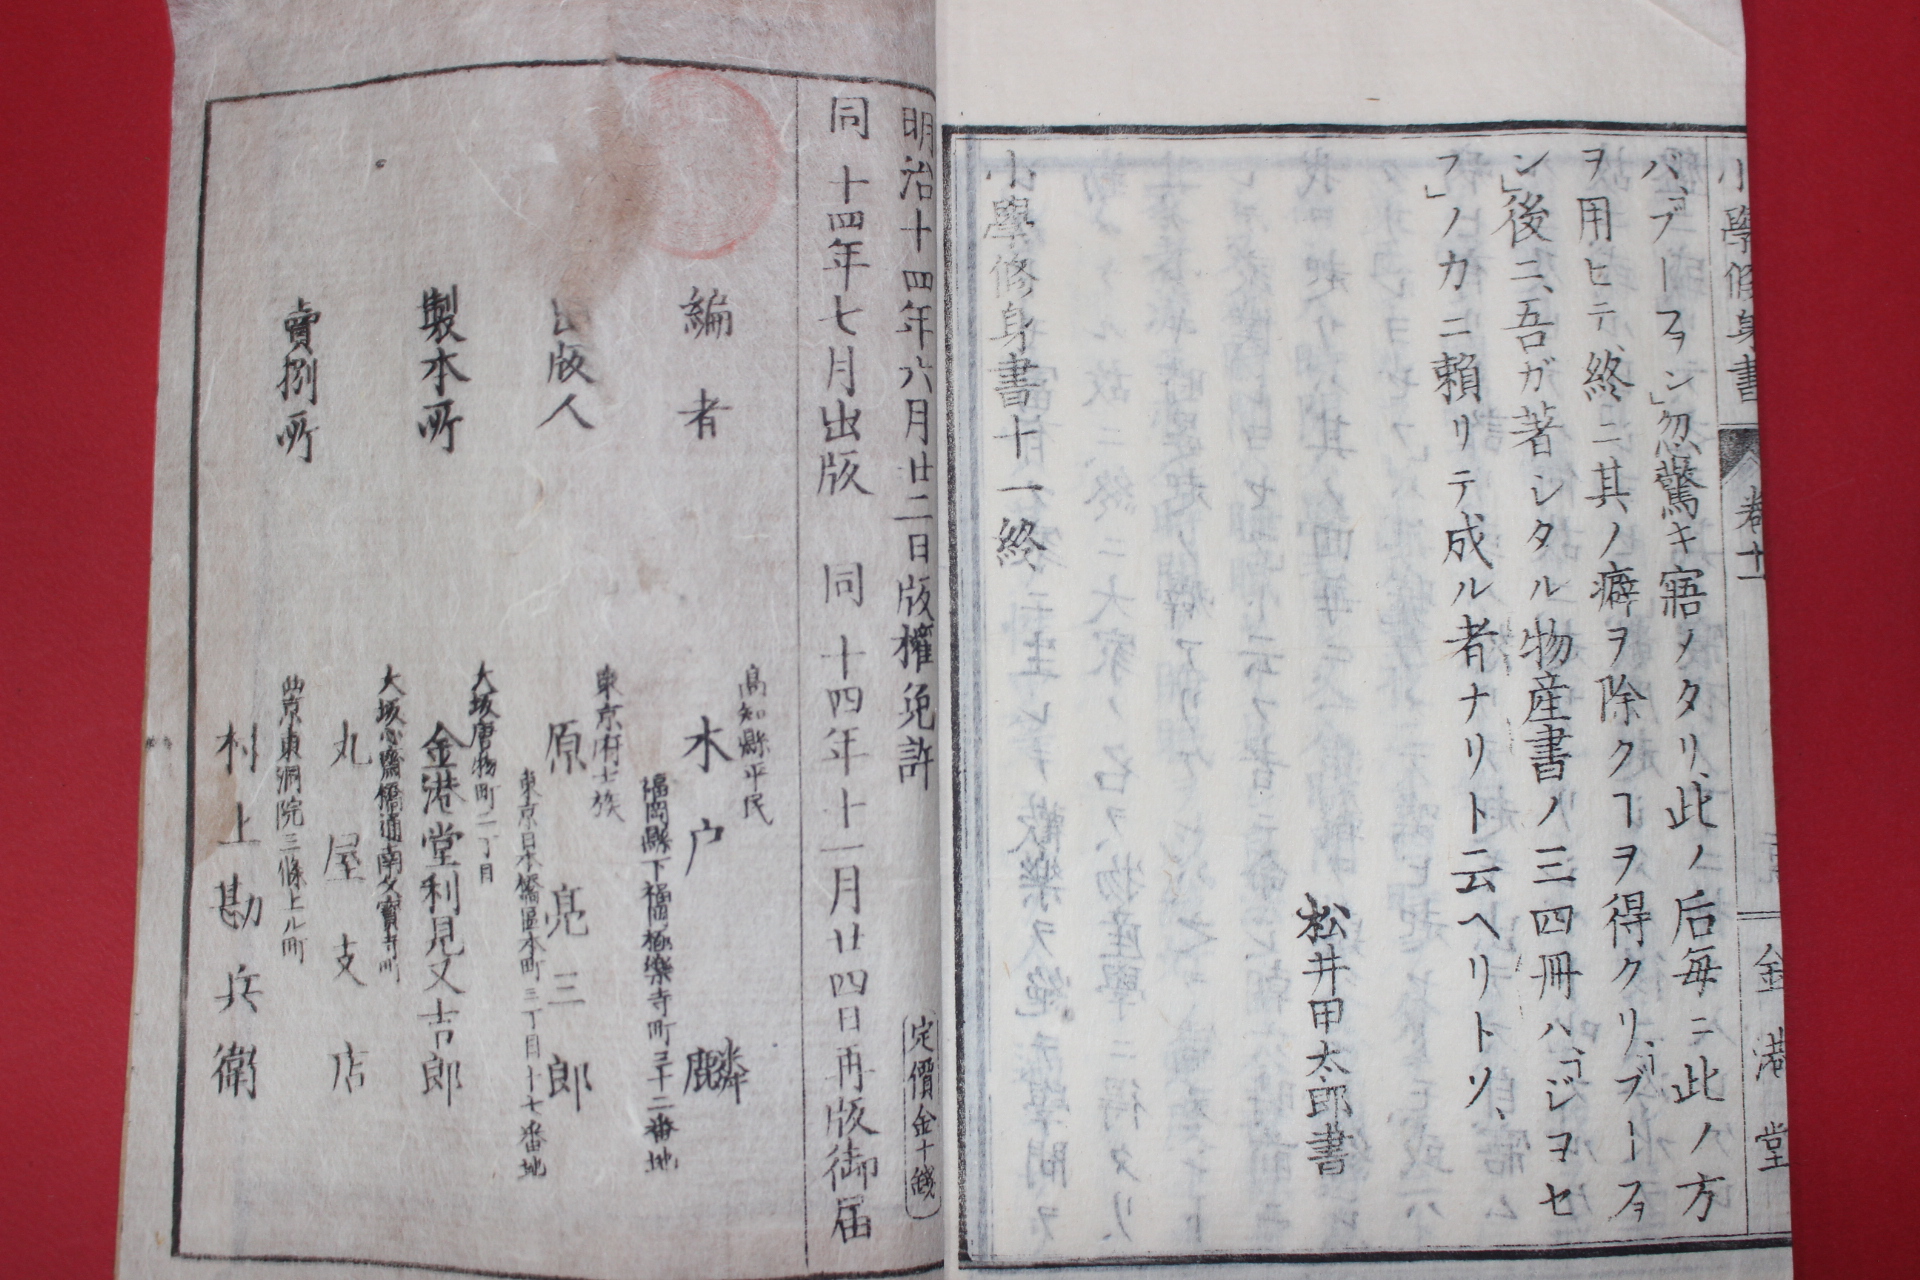 小學修身書
卷十一
金港堂
バ、「ブーフヲン」忽驚キ寤メタリ、此ノ后毎ニ此ノ方
ヲ用ヒテ、終ニ其ノ癖ヲ除クヿヲ得タリ、「ブーフヲ
ン」後ニ、吾ガ著シタル物産書ノ三四冊ハ、「ジヨセ
フ」ノカニ頼リテ成ル者ナリト云ヘリトソ、
松井甲太郎書
小學修身書十一終
明治十四年六月廿二日版權免許
定價金十錢
同十四年七月出版 同十四年十一月廿四日再版御届
高知縣平民
編者 水户麟
福岡縣下福岡極樂寺町三十二番地
東京府士族
出版人 原亮三郎
東京日本橋區本町三丁目十七番地
大坂唐物町二丁目
製本所 金港堂利見又吉郎
大坂心齋橋通南久寳寺町
賣捌所 丸屋支店
西京東洞院三條上ル町
村上勘兵衛